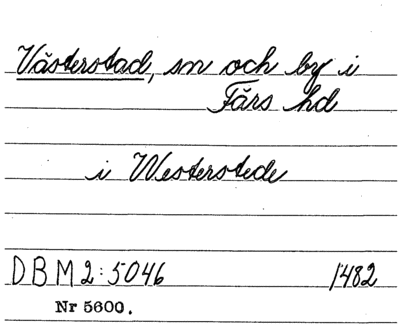 Västerstad, sn och by i
Färs hd
i Westerstede
DBM2:5046 1482
Nr 5600.